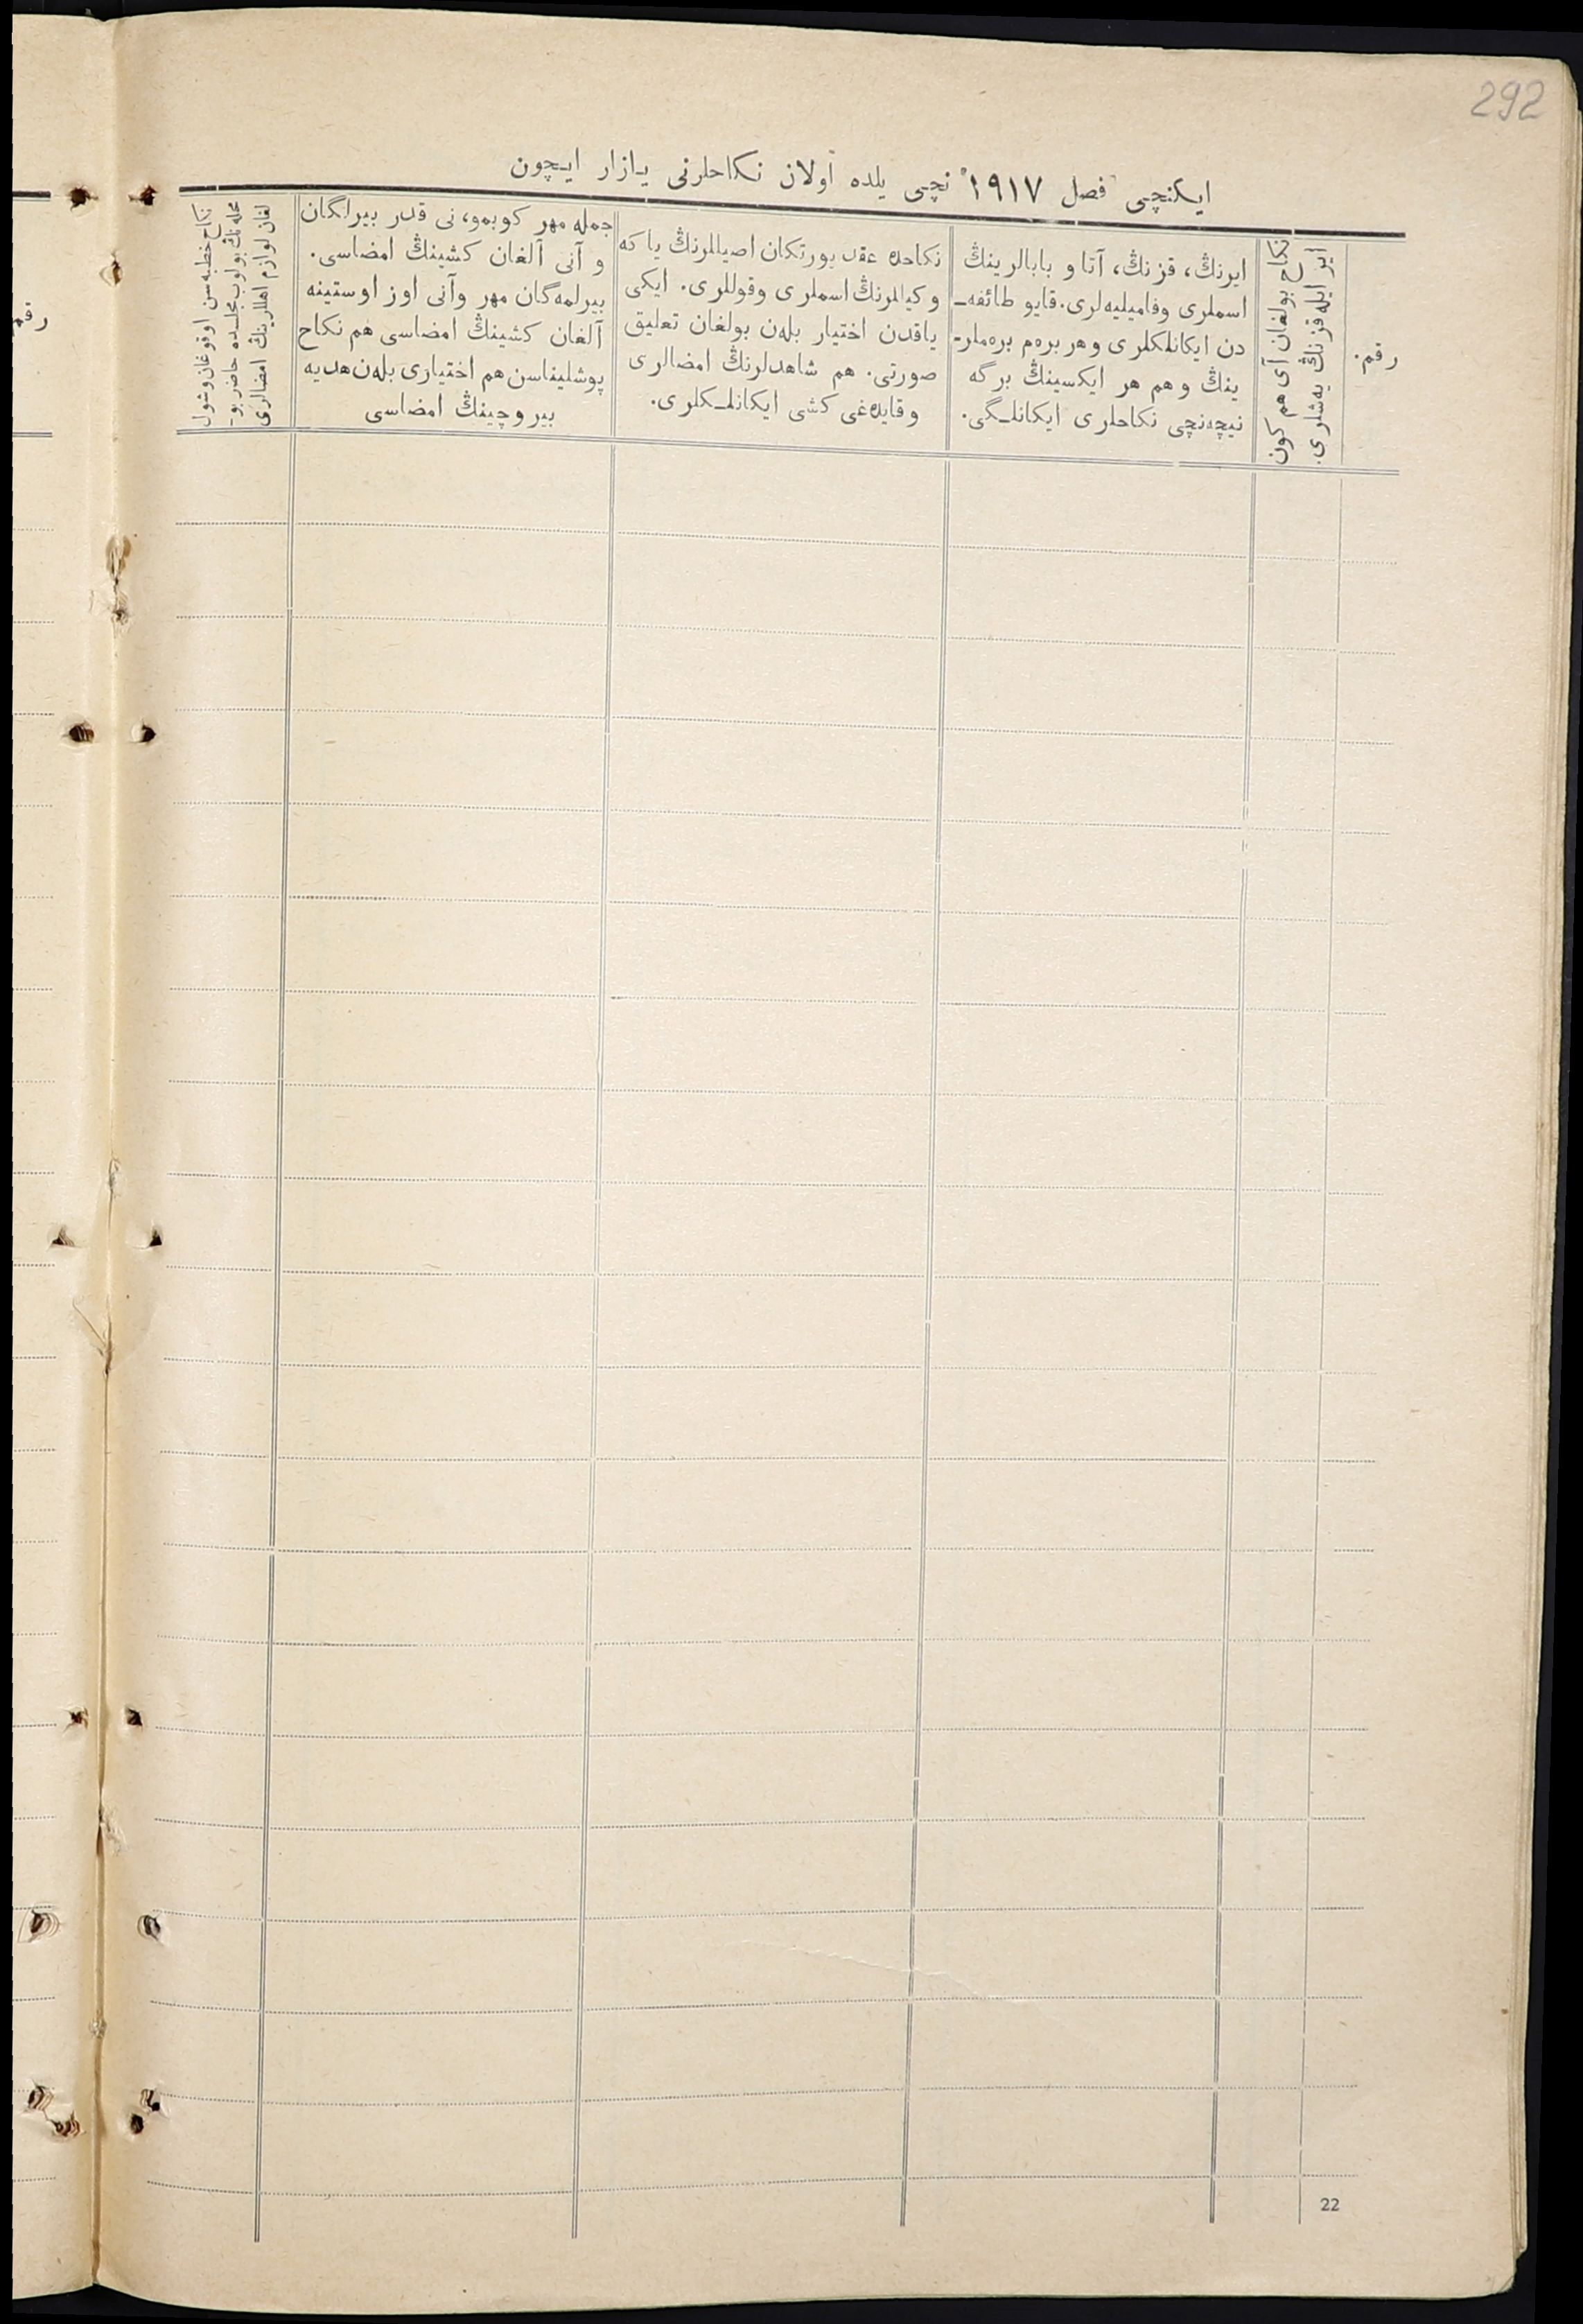 292
ايكنچی فصل ١٩١٧ نچی يلده اولان نكاحلرنی يازار ايچون
رقم.
ايرايله قزنڭ يه‌شلری.
نكاح بولغان آی هم كون
ايرنڭ، قزنڭ، آتا و بابالرينڭ
اسملری وفاميليه‌لری. قايو طائفه‌ـ
دن ايكانلكلری وهر بره‌م بره‌ملرـ
ينڭ وهم هر ايكسينڭ برگه
نيچه‌نچی نكاحلری ايكانلـگی.
نكاحده عقد يورتكان اصيللرنڭ ياكه
وكيللرنڭ اسملری وقوللری. ايكی
ياقدن اختيار بله‌ن بولغان تعليق
صورتی. هم شاهدلرنڭ امضالری
وقايده‌غی كشی ايكانلـكلری.
جمله مهر كوبمو، نی قدر بيرلگان
و آنی آلغان كشينڭ امضاسی.
بيرلمه‌گان مهر وآنی اوز اوستينه
آلغان كشينڭ امضاسی هم نكاح
پوشليناسن هم اختياری بله‌ن هديه
بيروچينڭ امضاسی
نكاح خطبه‌سن اوقوغان وشول
محله‌نڭ بولوب مجلسده حاضر بوـ
لغان لوازم اهللرينڭ امضالری
رقم
22